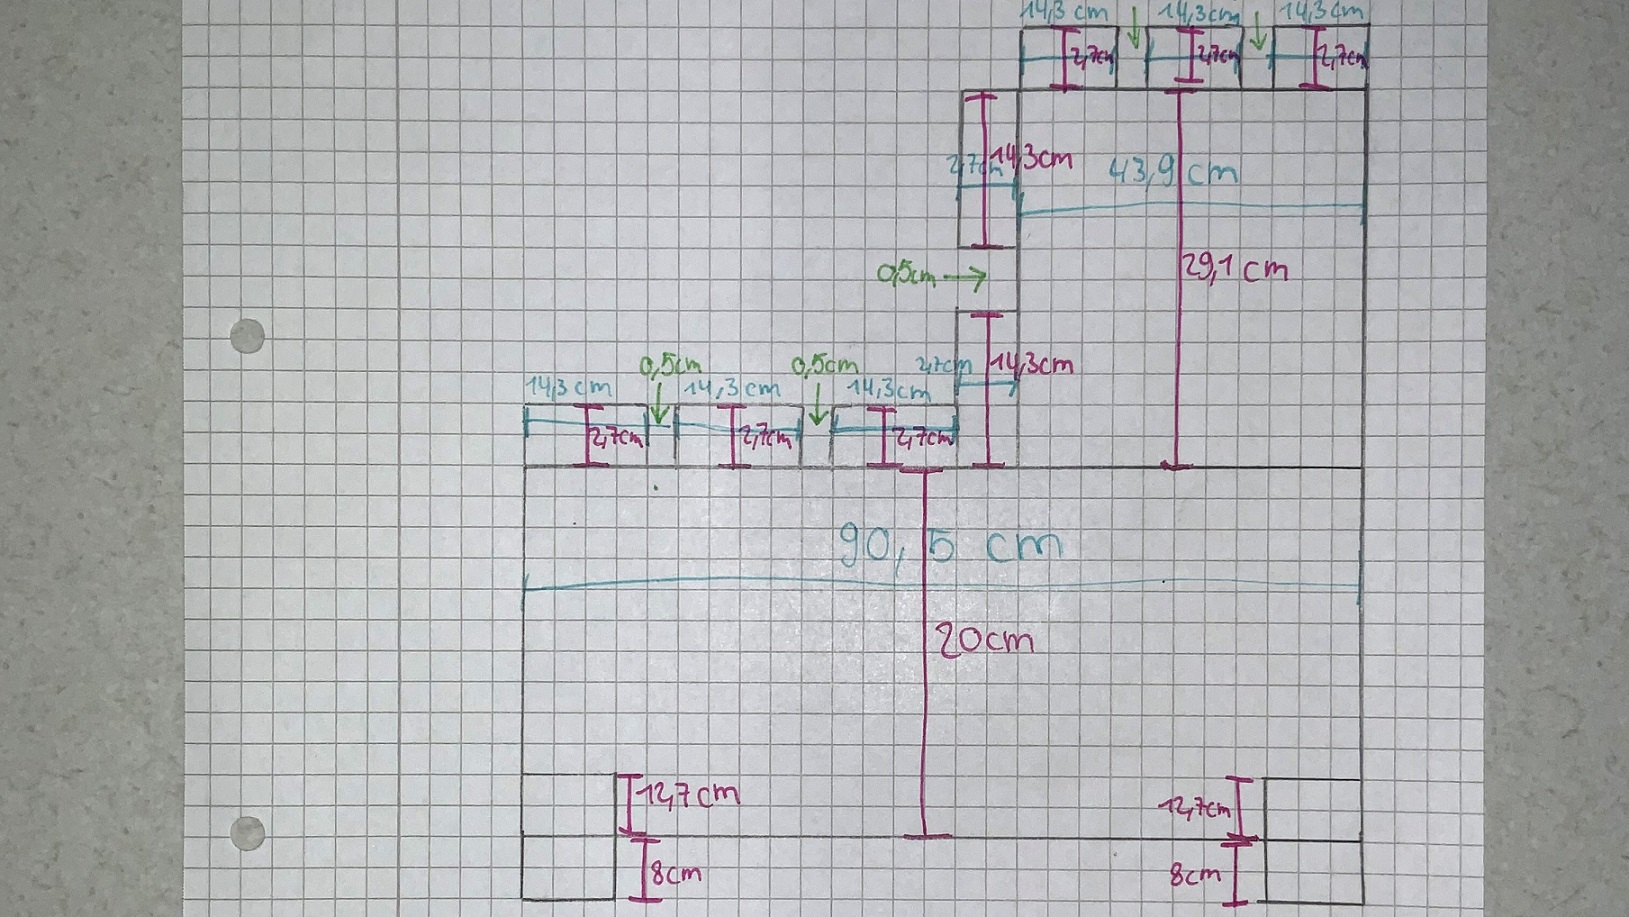 14,3 cm 14,3cm 14,3cm
2,7cm 2,7cm 2,7cm
2,7cm 14,3cm 43,9 cm
0,5cm 29,1 cm
0,5cm 0,5cm 2,7cm 14,3cm
14,3 cm 14,3 cm 14,3cm
2,7cm 2,7cm 2,7cm
90,5 cm
20cm
12,7cm 12,7cm
8cm 8cm